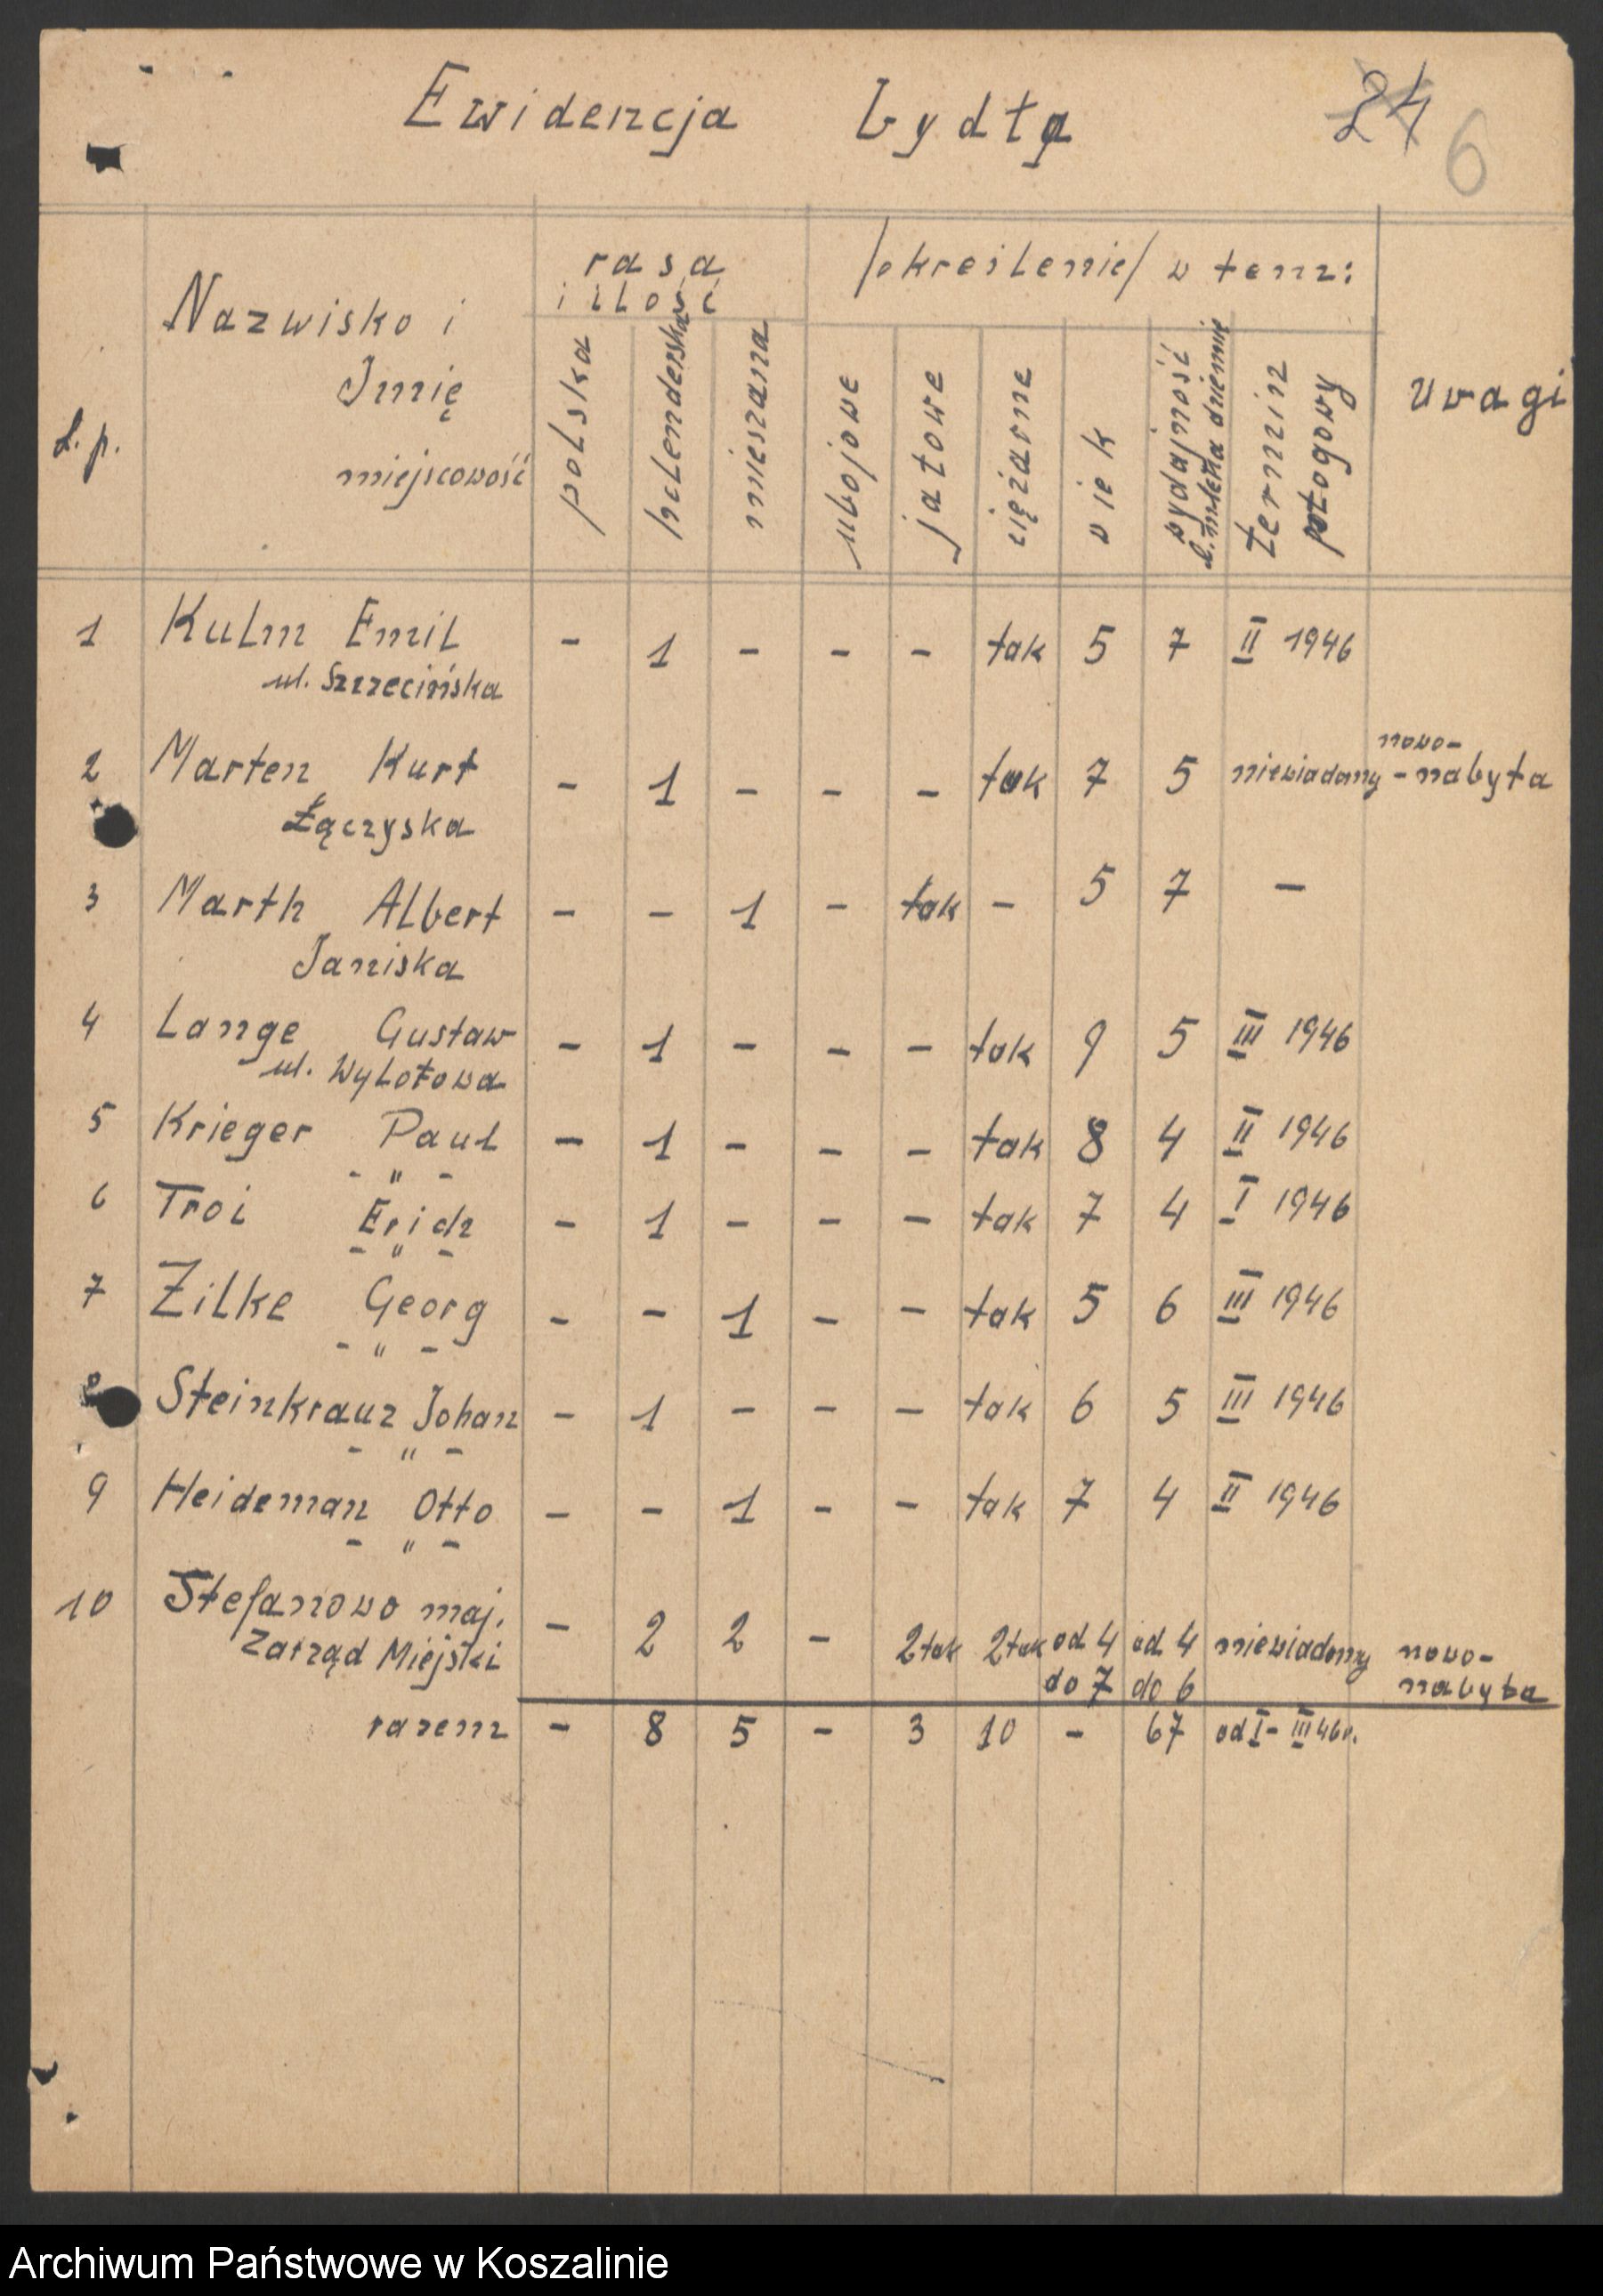 Ewidencja bydła
24
6
L. p.
Nazwisko i
Imię
miejscowość
rasa
i ilość
/określenie/ w tem:
polska
holenderska
mieszana
ubojowe
jałowe
ciężarne
wiek
wydajność
l. mleka dziennie
termin
połogowy
Uwagi
1 Kulm Emil - 1 - - - tak 5 7 II 1946
ul. Szczecińska
nowo-
2 Marten Kurt - 1 - - - tak 7 5 niewiadomy - nabyta
Łączyska
3 Marth Albert - - 1 - tak - 5 7 -
Janiska
4 Lange Gustaw - 1 - - - tak 9 5 III 1946
ul. Wylotowa
5 Krieger Paul - 1 - - - tak 8 4 II 1946
- " -
6 Troi Erich - 1 - - - tak 7 4 I 1946
- " -
7 Zilke Georg - - 1 - - tak 5 6 III 1946
- " -
8 Steinkrauz Johan - 1 - - - tak 6 5 III 1946
- " -
9 Heideman Otto - - 1 - - tak 7 4 II 1946
- " -
10 Stefanowo maj. - 2 2 - 2 tak 2 tak od 4 od 4 niewiadomy nowo-
Zarząd Miejski do 7 do 6 nabyta
razem - 8 5 - 3 10 - 67 od I - III 46 r.
Archiwum Państwowe w Koszalinie